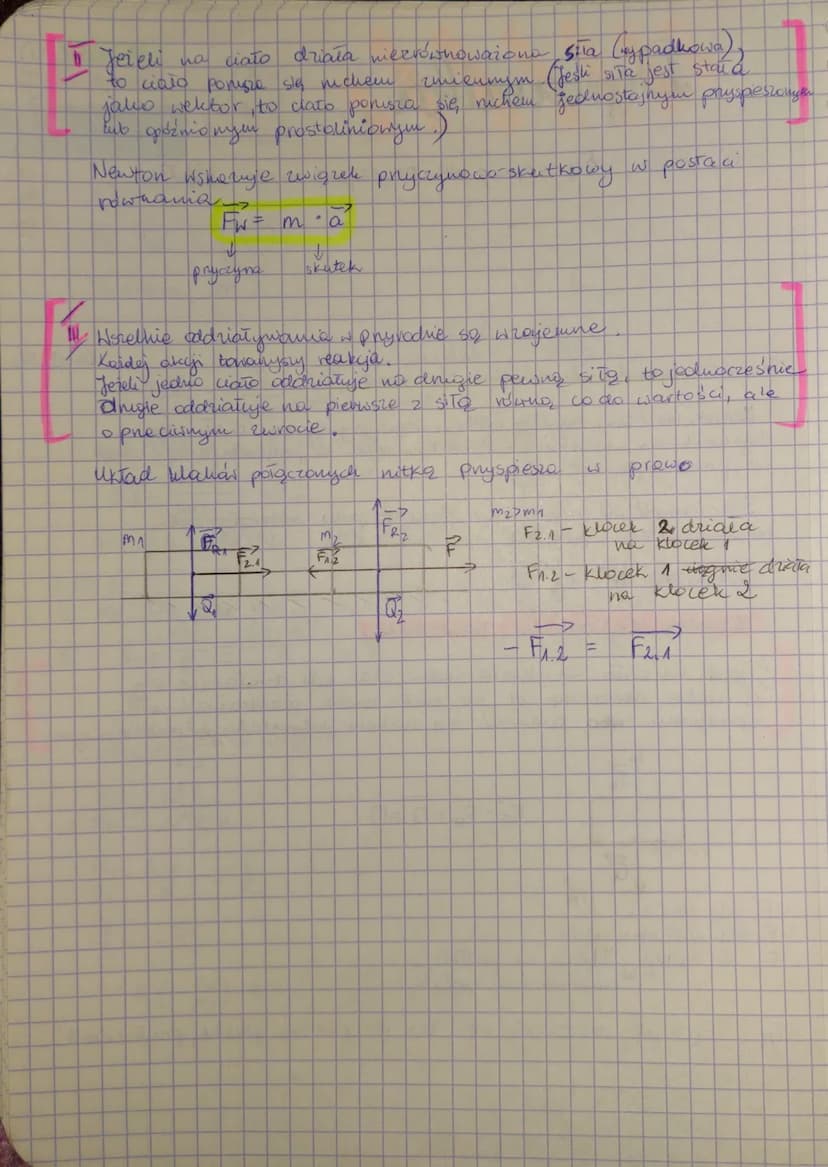 II Jeżeli na ciało działa niezrównoważona siła (wypadkowa),
to ciało porusza się ruchem zmiennym (Jeśli siła jest stała
jako wektor, to ciało porusza się ruchem jednostajnym przyspieszonym
lub opóźnionym prostoliniowym.)
Newton wskazuje związek przyczynowo-skutkowy w postaci
równania
Fw = m · a
przyczyna skutek
III Wszelkie oddziaływania w przyrodzie są wzajemne.
Każdej akcji towarzyszy reakcja.
Jeżeli jedno ciało oddziałuje na drugie pewną siłą, to jednocześnie
drugie oddziałuje na pierwsze z siłą równą co do wartości, ale
o przeciwnym zwrocie.
Układ klocków połączonych nitką przyspiesza w prawo
m1 FR1 F2.1 Q1
m2 F1.2 FR2 F Q2
m2>m1
F2.1 – klocek 2 działa
na klocek 1
F1.2 – klocek 1 działa
na klocek 2
– F1.2 = F2.1